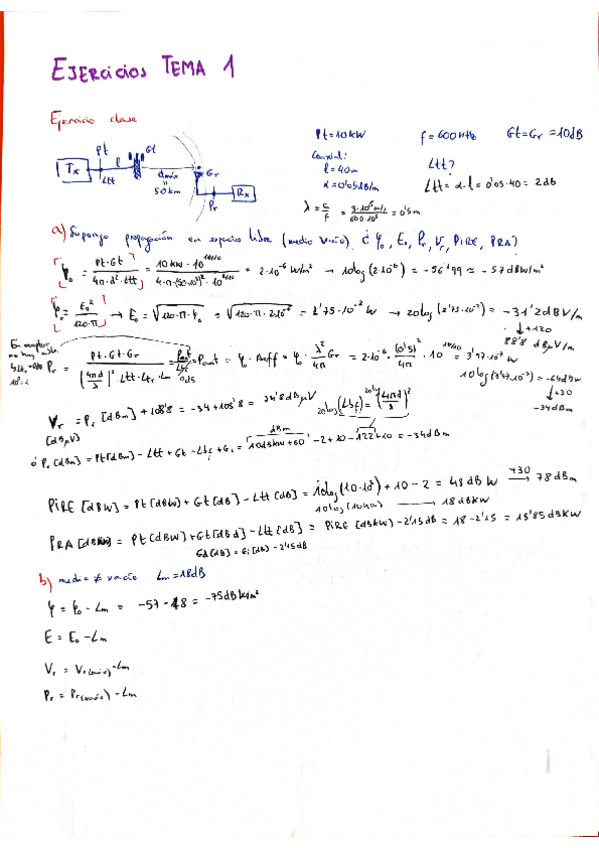 EJERCICIOS TEMA 1
Ejercicio clase
Pt=10kW f=600MHz Gt=Gr=10dB
Coaxial:
l=40m
α=0'05dB/m
Ltt?
Ltt=α·l=0'05·40=2dB
λ=c/f=3·10⁸m/s/600·10⁶=0'5m
Tx Pt l Gt Ltt dmáx 50km Gr Pr Rx
a) Supongo propagación en espacio libre (medio vacío). ¿φ₀, E₀, Pr, Vr, PIRE, PRA?
φ₀ = Pt·Gt/4π·d²·Ltt = 10kW·10^10/10/4·π·(50·10³)²·10^2/10 = 2·10⁻⁶ W/m² → 10log(2·10⁻⁶) = -56'99 ≈ -57dBW/m²
φ₀ = E₀²/120·π → E₀ = √120·π·φ₀ = √120·π·2·10⁻⁶ = 2'75·10⁻² → 20log(2'75·10⁻²) = -31'2dBV/m
↓+120
88'8 dBμV/m
Pr = Pt·Gt·Gr/(4πd/λ)²·Ltt·Ltr·Lm = Pant/Ltr = Pant = φ₀·Aeff = φ₀·λ²/4π·Gr = 2·10⁻⁶·(0'5)²/4π·10^10/10 = 3'97·10⁻⁷ W
10log(3'97·10⁻⁷) = -64dBW
↓+30
-34dBm
Vr [dBμV] = Pr [dBm] + 108'8 = -34+108'8 = 74'8dBμV
20log(Lbf) = 20log(4πd/λ)²
ó Pr [dBm] = Pt[dBm] - Ltt + Gt - Lbf + Gr = 10log10kW+60 -2+10-122+10 = -34dBm
PIRE [dBW] = Pt [dBW] + Gt [dB] - Ltt [dB] = 10log(10·10³)+10-2 = 48dBW +30 → 78dBm
10log(10kW) → 18dBkW
PRA [dBkW] = Pt [dBW]+Gt[dBd]-Ltt [dB] = PIRE [dBkW]-2'15dB = 18-2'15 = 15'85dBkW
Gd[dB] = Gi[dB] - 2'15dB
b) medio ≠ vacío Lm=18dB
φ = φ₀ - Lm = -57-18 = -75dBW/m²
E = E₀ - Lm
Vr = Vr(vacío) - Lm
Pr = Pr(vacío) - Lm